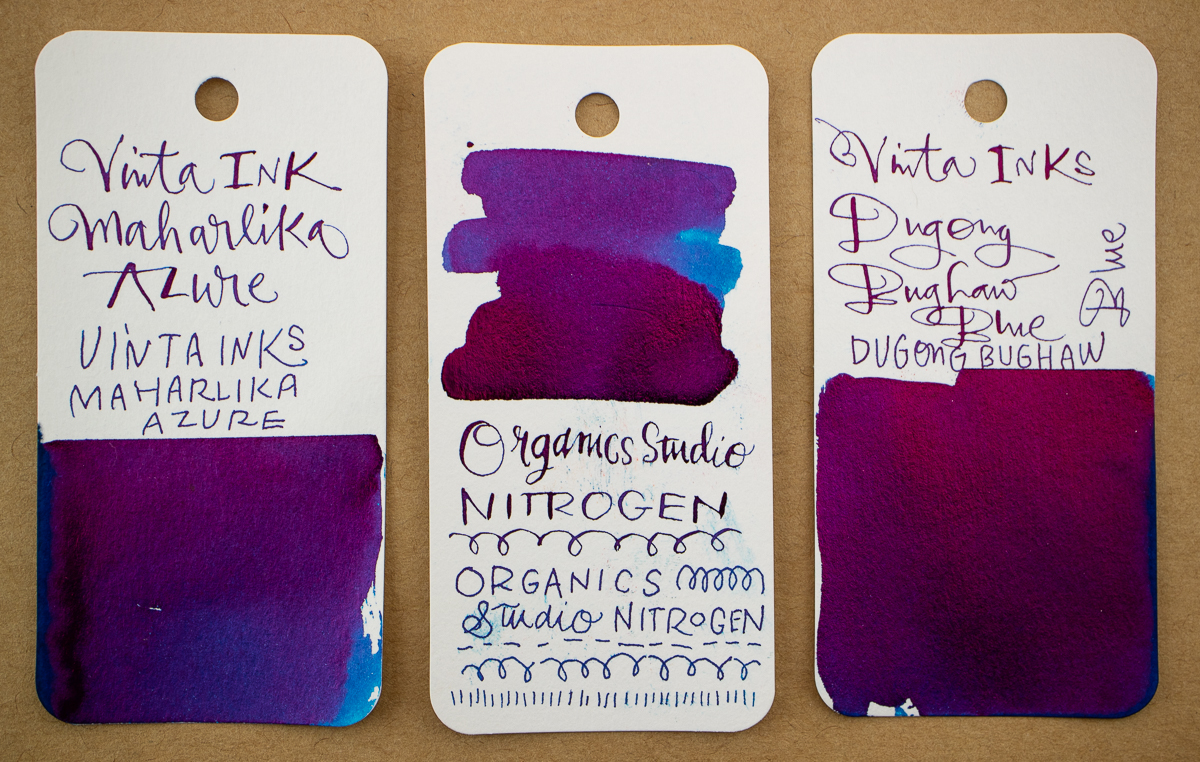 Vinta INK
Maharlika
AZure
VINTA INKS
MAHARLIKA
AZURE
Organics Studio
NITROGEN
ORGANICS
Studio NITROGEN
Vinta INKS
Dugong
Bughaw
Blue
Blue
DUGONG BUGHAW